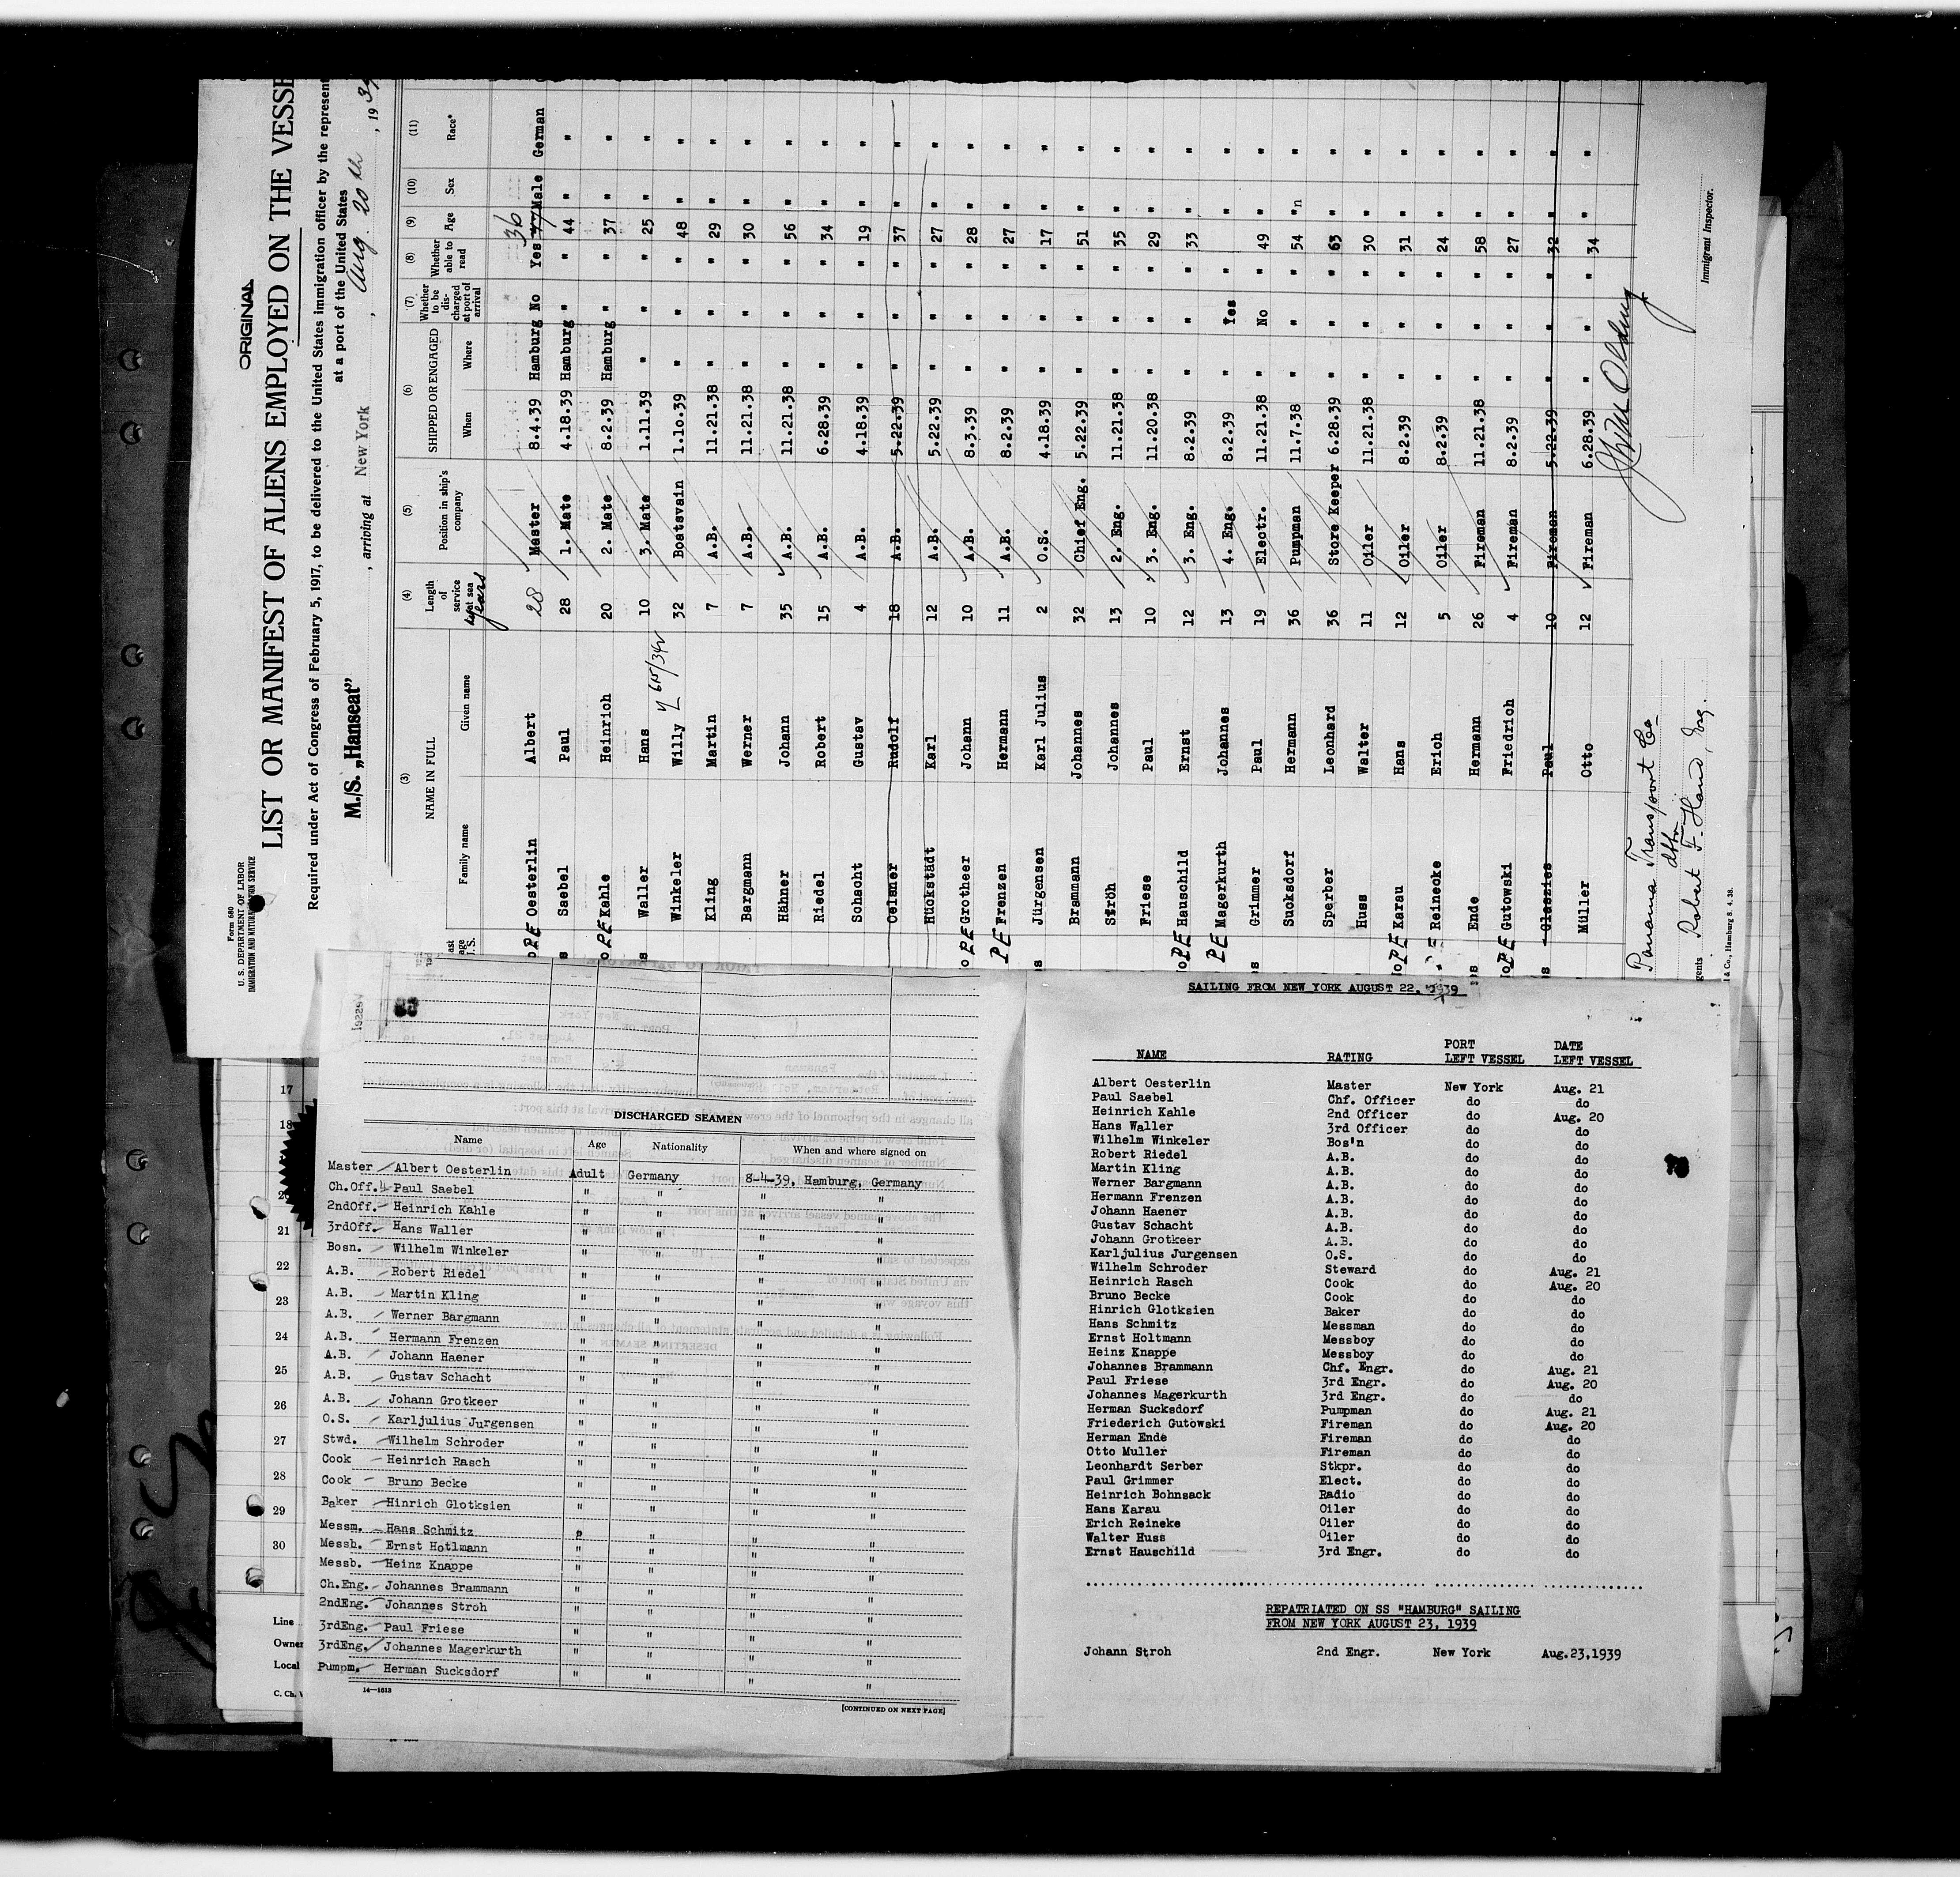 ORIGINAL
Form 680
U. S. DEPARTMENT OF LABOR
IMMIGRATION AND NATURALIZATION SERVICE
LIST OR MANIFEST OF ALIENS EMPLOYED ON THE VESSE
Required under Act of Congress of February 5, 1917, to be delivered to the United States immigration officer by the represent
at a port of the United States
M./S. „Hanseat” , arriving at New York , Aug 20 th , 1939
(3) (4) (5) (6) (7) (8) (9) (10) (11)
NAME IN FULL Length of service at sea Position in ship's company SHIPPED OR ENGAGED Whether to be discharged at port of arrival Whether able to read Age Sex Race*
Family name Given name years When Where
PE Oesterlin Albert 28 Master 8.4.39 Hamburg No Yes 47 36 Male German
Saebel Paul 28 1. Mate 4.18.39 Hamburg " " 44 " "
PE Kahle Heinrich 20 2. Mate 8.2.39 Hamburg " " 37 " "
Waller Hans 10 3. Mate 1.11.39 " " " 25 " "
Winkeler Willy 32 Boatsvain 1.10.39 " " " 48 " "
Kling Martin 7 A.B. 11.21.38 " " " 29 " "
Bargmann Werner 7 A.B. 11.21.38 " " " 30 " "
Hähner Johann 35 A.B. 11.21.38 " " " 56 " "
Riedel Robert 15 A.B. 6.28.39 " " " 34 " "
Schacht Gustav 4 A.B. 4.18.39 " " " 19 " "
Oelsner Rudolf 18 A.B. 5.22.39 " " " 37 " "
Huckstädt Karl 12 A.B. 5.22.39 " " " 27 " "
PE Grotheer Johann 10 A.B. 8.3.39 " " " 28 " "
PE Frenzen Hermann 11 A.B. 8.2.39 " " " 27 " "
Jürgensen Karl Julius 2 O.S. 4.18.39 " " " 17 " "
Brammann Johannes 32 Chief Eng. 5.22.39 " " " 51 " "
Ströh Johannes 13 2. Eng. 11.21.38 " " " 35 " "
Friese Paul 10 3. Eng. 11.20.38 " " " 29 " "
PE Hauschild Ernst 12 3. Eng. 8.2.39 " " " 33 " "
PE Magerkurth Johannes 13 4. Eng. 8.2.39 " Yes " " "
Grimmer Paul 19 Electr. 11.21.38 " No " 49 " "
Sucksdorf Hermann 36 Pumpman 11.7.38 " " " 54 "n "
Sperber Leonhard 36 Store Keeper 6.28.39 " " " 63 " "
Huss Walter 11 Oiler 11.21.38 " " " 30 " "
PE Karau Hans 12 Oiler 8.2.39 " " " 31 " "
PE Reinecke Erich 5 Oiler 8.2.39 " " " 24 " "
Ende Hermann 26 Fireman 11.21.38 " " " 58 " "
PE Gutowski Friedrich 4 Fireman 8.2.39 " " " 27 " "
Paul 10 Fireman 5.22.39 " " " 32 " "
Müller Otto 12 Fireman 6.28.39 " " " 34 " "
Panama Transport Co
Robert F. Hand,
Immigrant Inspector.
& Co., Hamburg 8. 4. 38.
17
18
21
22
23
24
25
26
27
28
29
30
Line
Owner
Local
C. Ch.
DISCHARGED SEAMEN
Name Age Nationality When and where signed on
Master Albert Oesterlin Adult Germany 8-4-39, Hamburg, Germany
Ch.Off. Paul Saebel " " " "
2ndOff. Heinrich Kahle " " " "
3rdOff. Hans Waller " " " "
Bosn. Wilhelm Winkeler " " " "
A.B. Robert Riedel " " " "
A.B. Martin Kling " " " "
A.B. Werner Bargmann " " " "
A.B. Hermann Frenzen " " " "
A.B. Johann Haener " " " "
A.B. Gustav Schacht " " " "
A.B. Johann Grotkeer " " " "
O.S. Karljulius Jurgensen " " " "
Stwd. Wilhelm Schroder " " " "
Cook Heinrich Rasch " " " "
Cook Bruno Becke " " " "
Baker Hinrich Glotksien " " " "
Messm. Hans Schmitz " " " "
Messb. Ernst Hotlmann " " " "
Messb. Heinz Knappe " " " "
Ch.Eng. Johannes Brammann " " " "
2ndEng. Johannes Stroh " " " "
3rdEng. Paul Friese " " " "
3rdEng. Johannes Magerkurth " " " "
Pumpm. Herman Sucksdorf " " " "
14—1613
[CONTINUED ON NEXT PAGE]
SAILING FROM NEW YORK AUGUST 22, 1939
NAME RATING PORT LEFT VESSEL DATE LEFT VESSEL
Albert Oesterlin Master New York Aug. 21
Paul Saebel Chf. Officer do do
Heinrich Kahle 2nd Officer do Aug. 20
Hans Waller 3rd Officer do do
Wilhelm Winkeler Bos'n do do
Robert Riedel A.B. do do
Martin Kling A.B. do do
Werner Bargmann A.B. do do
Hermann Frenzen A.B. do do
Johann Haener A.B. do do
Gustav Schacht A.B. do do
Johann Grotkeer A.B. do do
Karljulius Jurgensen O.S. do do
Wilhelm Schroder Steward do Aug. 21
Heinrich Rasch Cook do Aug. 20
Bruno Becke Cook do do
Hinrich Glotksien Baker do do
Hans Schmitz Messman do do
Ernst Holtmann Messboy do do
Heinz Knappe Messboy do do
Johannes Brammann Chf. Engr. do Aug. 21
Paul Friese 3rd Engr. do Aug. 20
Johannes Magerkurth 3rd Engr. do do
Herman Sucksdorf Pumpman do Aug. 21
Friederich Gutowski Fireman do Aug. 20
Herman Ende Fireman do do
Otto Muller Fireman do do
Leonhardt Serber Stkpr. do do
Paul Grimmer Elect. do do
Heinrich Bohnsack Radio do do
Hans Karau Oiler do do
Erich Reineke Oiler do do
Walter Huss Oiler do do
Ernst Hauschild 3rd Engr. do do
REPATRIATED ON SS "HAMBURG" SAILING
FROM NEW YORK AUGUST 23, 1939
Johann Stroh 2nd Engr. New York Aug.23,1939